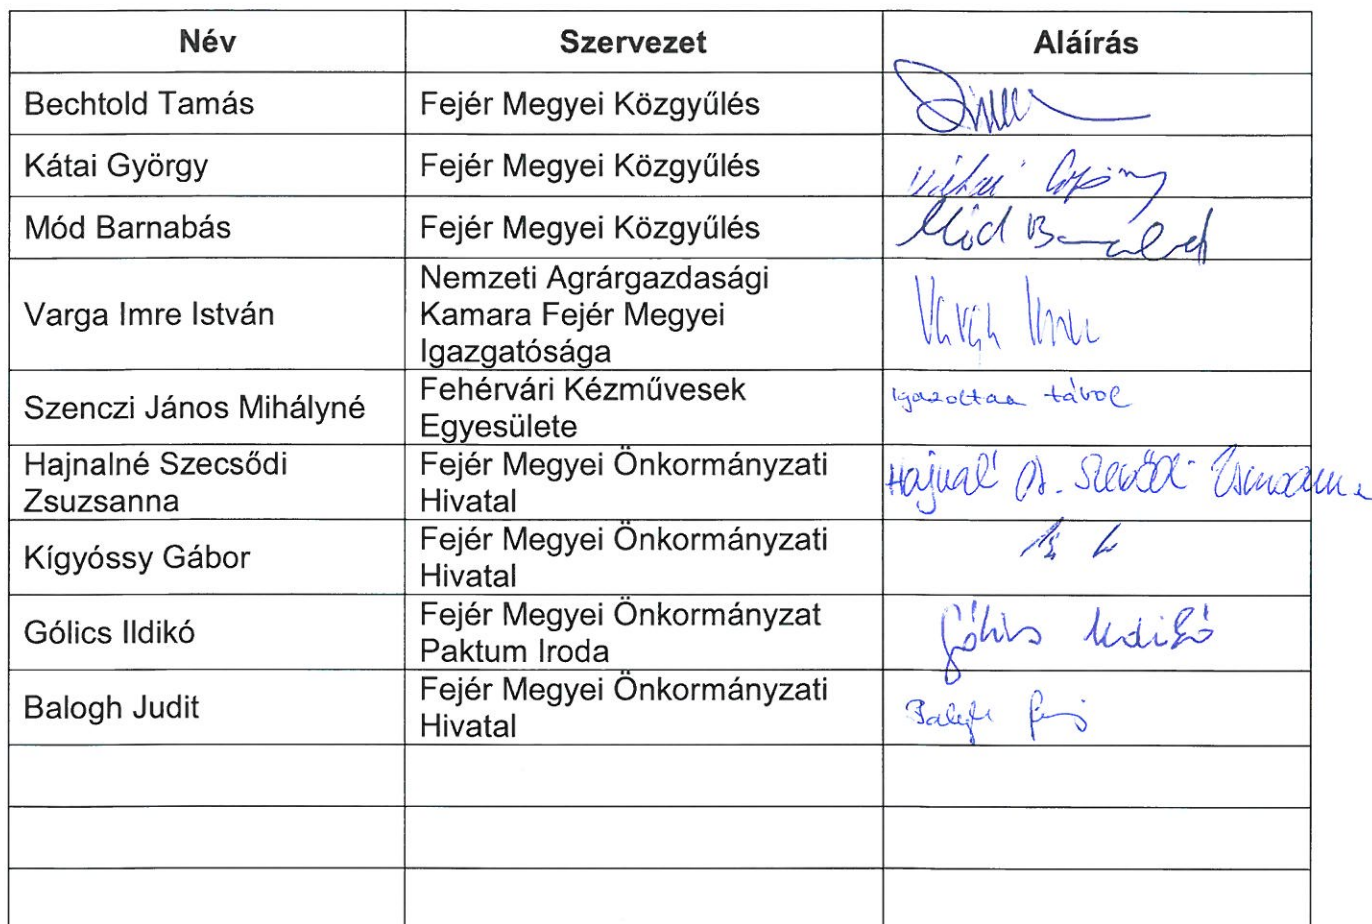 Név Szervezet Aláírás
Bechtold Tamás Fejér Megyei Közgyűlés
Kátai György Fejér Megyei Közgyűlés
Mód Barnabás Fejér Megyei Közgyűlés Mód
Varga Imre István Nemzeti Agrárgazdasági
Kamara Fejér Megyei
Igazgatósága
Varga Imre
Szenczi János Mihályné Fehérvári Kézművesek
Egyesülete
igazoltan távol
Hajnalné Szecsődi
Zsuzsanna
Fejér Megyei Önkormányzati
Hivatal
Kígyóssy Gábor Fejér Megyei Önkormányzati
Hivatal
Gólics Ildikó Fejér Megyei Önkormányzat
Paktum Iroda
Gólics Ildikó
Balogh Judit Fejér Megyei Önkormányzati
Hivatal
Balogh